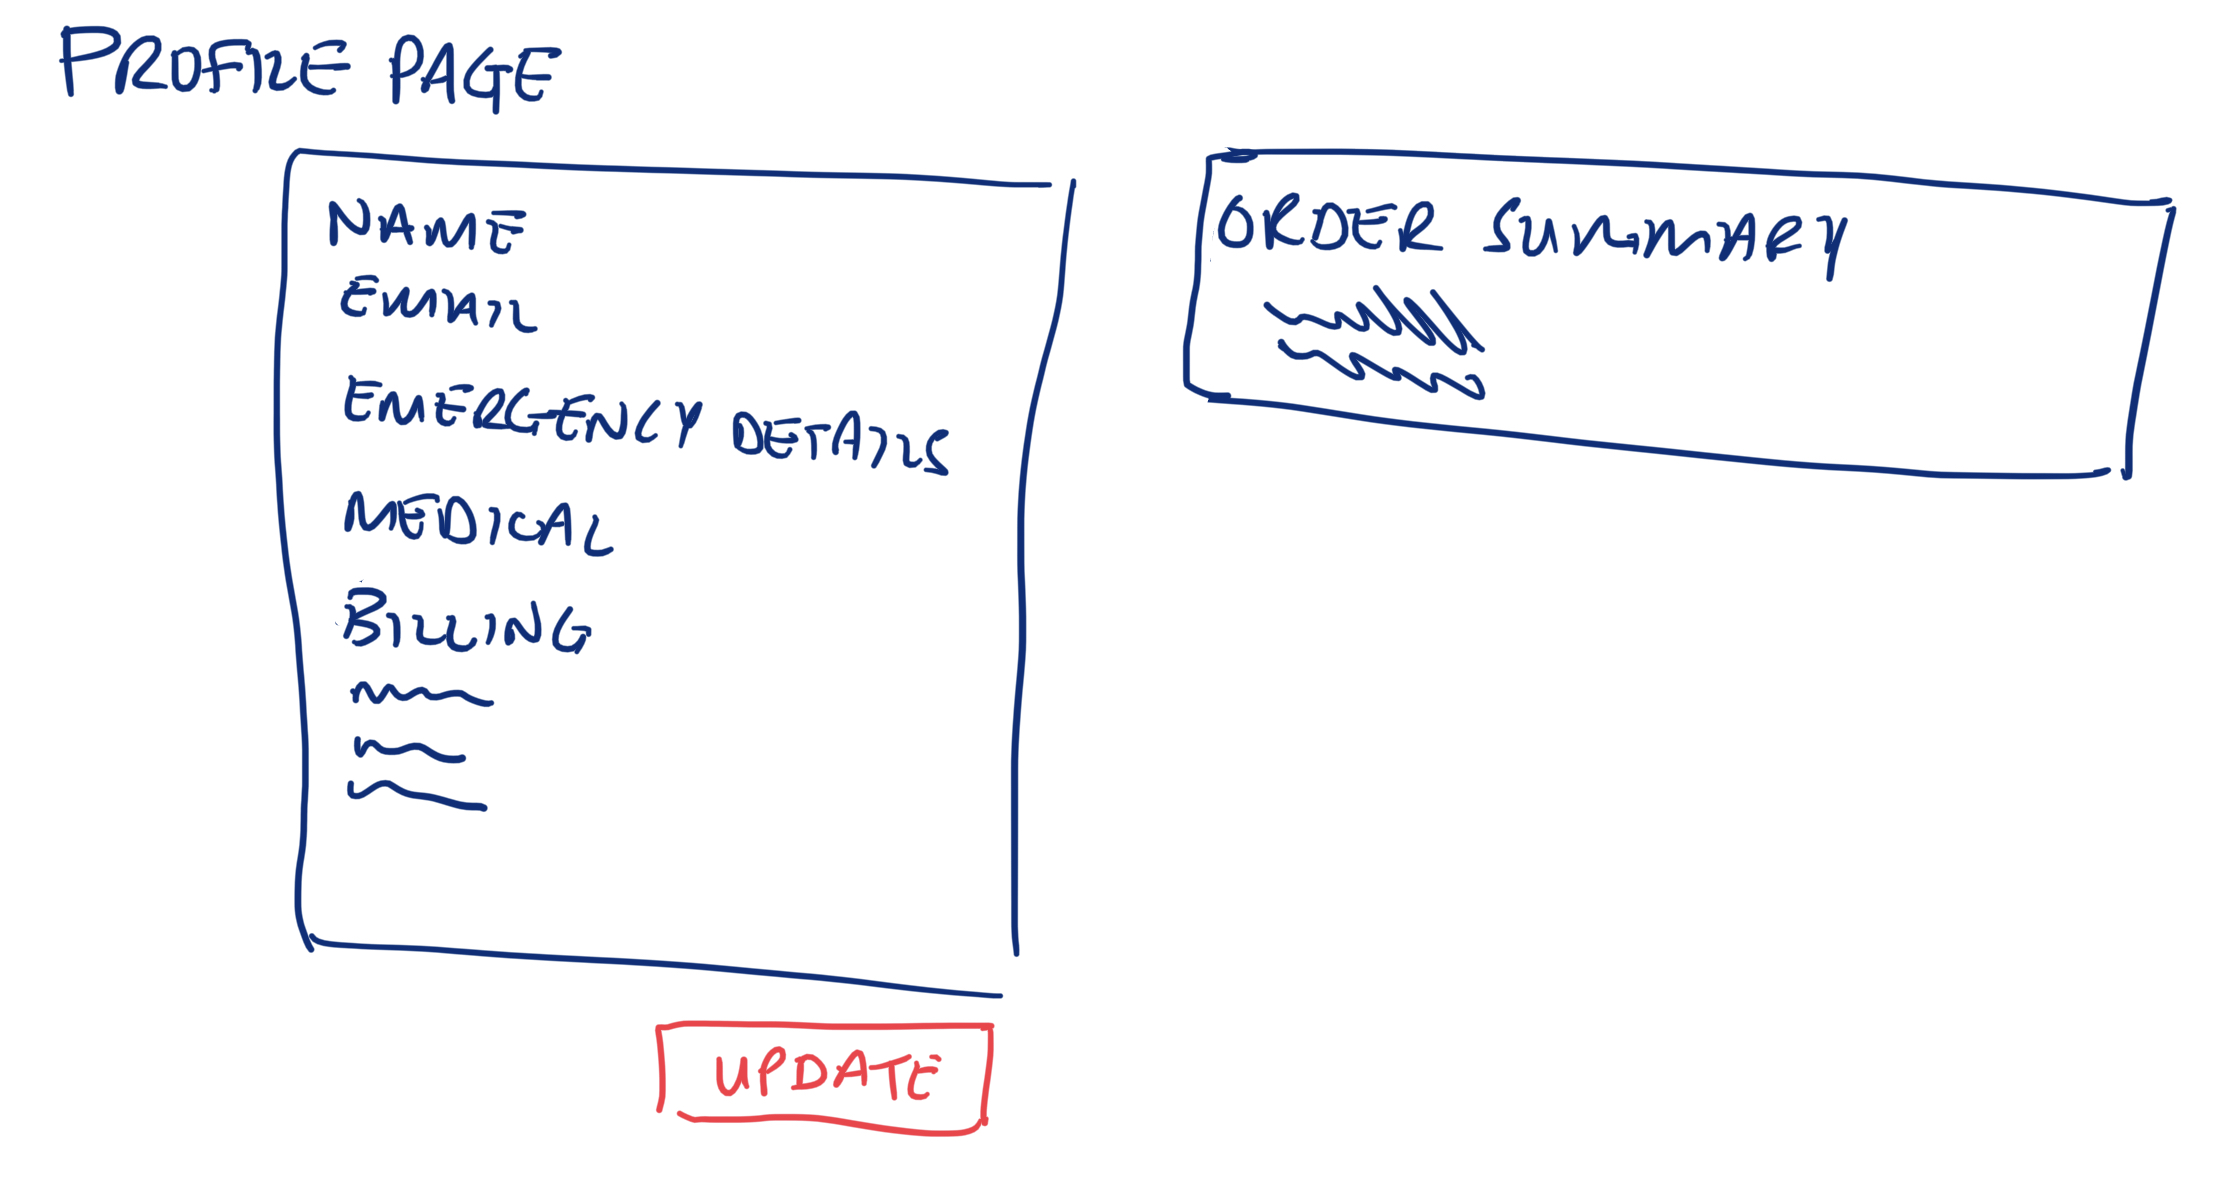 PROFILE PAGE
NAME
EMAIL
EMERGENCY DETAILS
MEDICAL
BILLING
UPDATE
ORDER SUMMARY